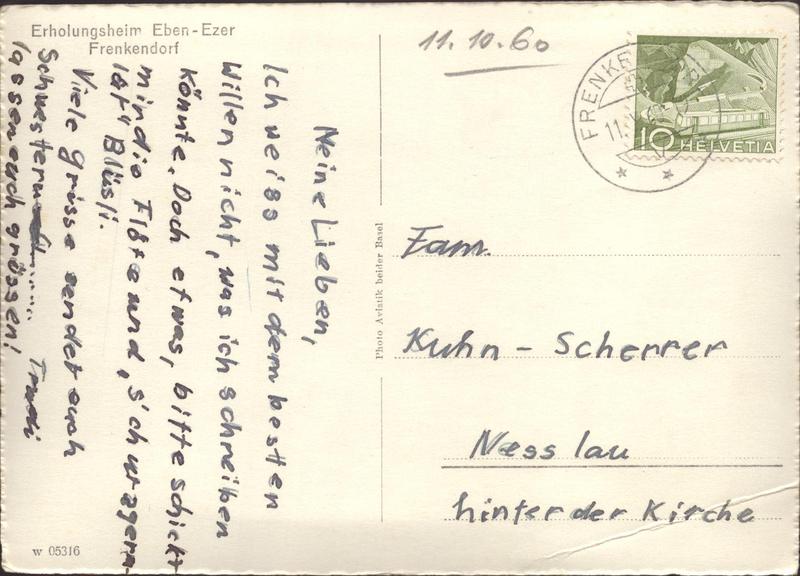 Erholungsheim Eben-Ezer
Frenkendorf
11. 10. 60
FRENKE
11.
10 HELVETIA
Meine Lieben,
Ich weiss mit dem besten
Willen nicht, was ich schreiben
könnte. Doch etwas, bitte schickt
mir die Flöte und
Blüsli.
Viele grüsse sendet euch
Trudi
Schwestern
lassen euch grüssen!
Photo Avistik beider Basel
Fam.
Kuhn - Scherrer
Nesslau
hinter der Kirche
w 05316